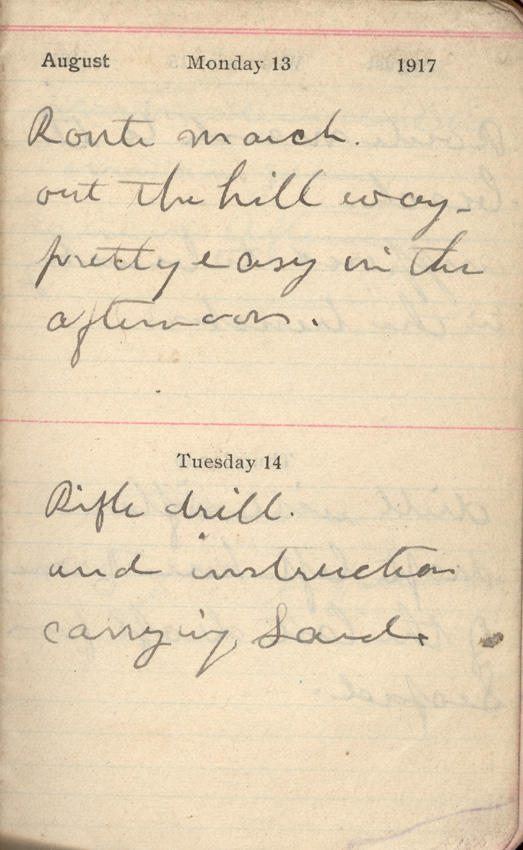 August Monday 13 1917
Route march.
out the hill way-
pretty easy in the
afternoon.
Tuesday 14
Rifle drill.
and instruction
carrying Sand.